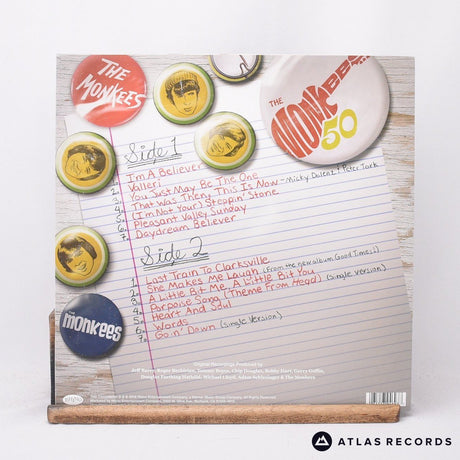 THE
MONKEES
THE
MONKEES
50
Side 1
1. I'm A Believer
2. Valleri
3. You Just May Be The One
4. That Was Then, This Is Now - Micky Dolenz & Peter Tork
5. (I'm Not Your) Steppin' Stone
6. Pleasant Valley Sunday
7. Daydream Believer
Side 2
1. Last Train To Clarksville
2. She Makes Me Laugh (From the new album Good Times!)
3. A Little Bit Me, A Little Bit You
4. Porpoise Song (Theme From Head) (single version)
5. Heart And Soul
6. Words
7. Goin' Down (single version)
THE
monkees
Original Recordings Produced by
Jeff Barry, Roger Bechirian, Tommy Boyce, Chip Douglas, Bobby Hart, Gerry Goffin,
Douglas Farthing Hatlelid, Michael Lloyd, Adam Schlesinger & The Monkees
RHINO
ATLAS RECORDS